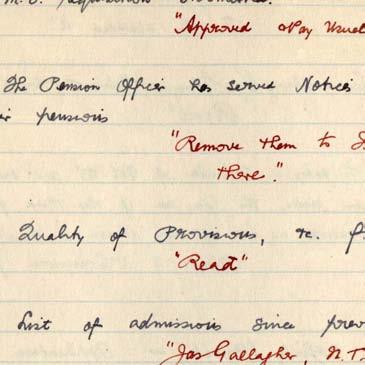 "Approved Pay Usual
The Pension Officer has served Notices
pensions
"Remove them to
there."
Quality of Provisions, &c.
"Read"
List of admissions since
"Jas Gallagher, N.T.